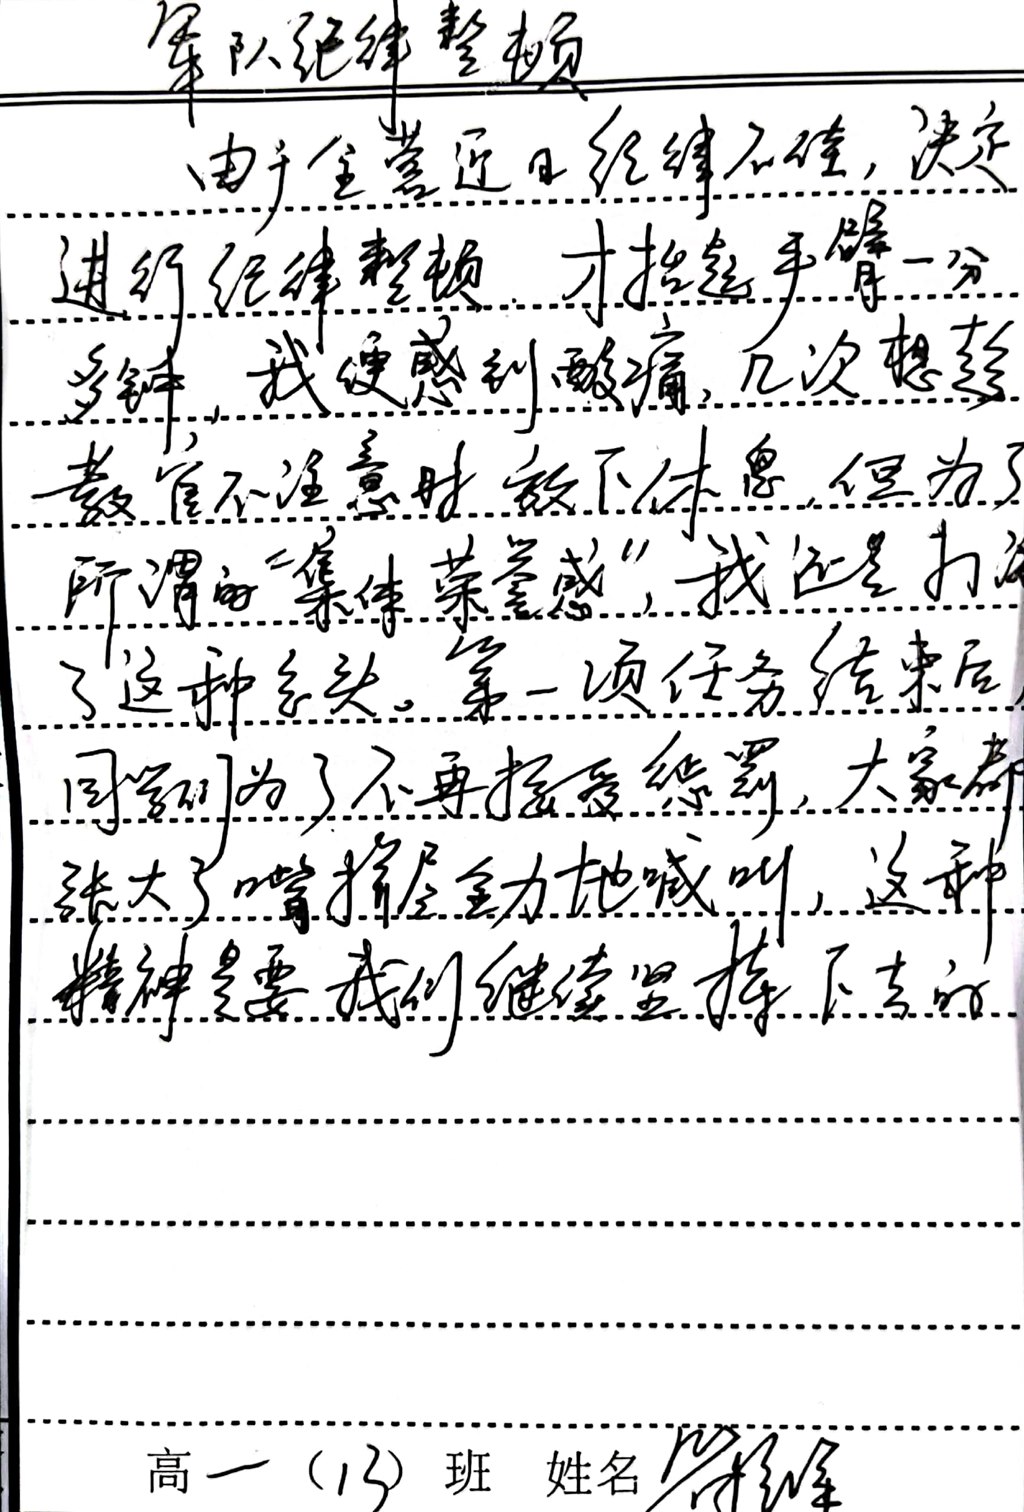 军队纪律整顿
由于全营近日纪律不佳，决定
进行纪律整顿．才抬起手臂一分
多钟，我便感到酸痛，几次想趁
教官不注意时放下休息，但为了
所谓的“集体荣誉感”，我还是打消
了这种念头。第一项任务结束后，
同学们为了不再接受惩罚，大家都
张大了嘴搾尽全力地喊叫，这种
精神是要我们继续坚持下去的
高一（13）班 姓名